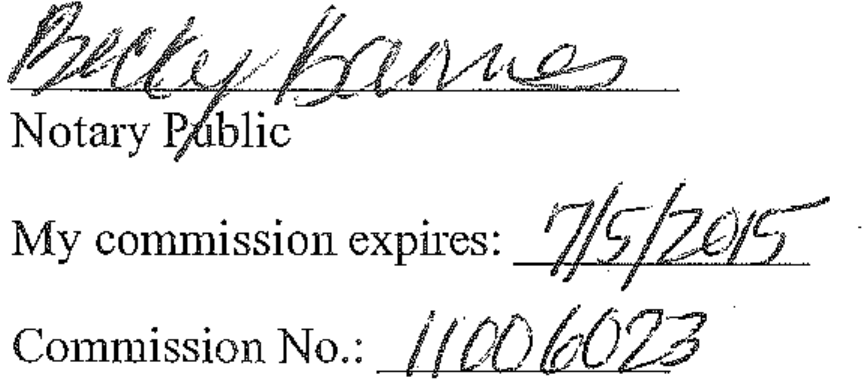 Becky Barnes
Notary Public
My commission expires: 7/5/2015
Commission No.: 11006023